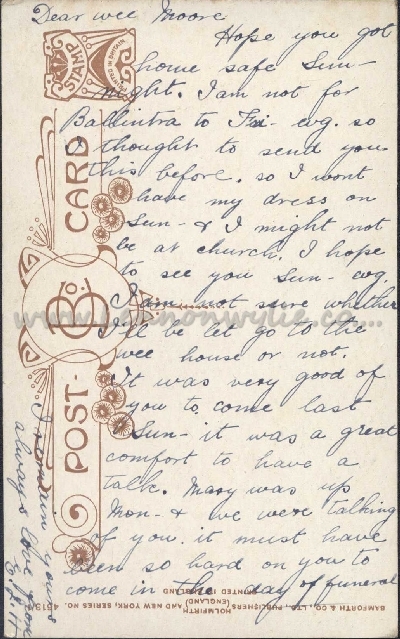 Dear wee Moore
Hope you got
home safe Sun-
night. I am not for
Ballintra to Fri- evg. so
I thought to send you
this before. so I wont
have my dress on
Sun- & I might not
be at church. I hope
to see you Sun- evg.
I am not sure whether
I'll be let go to the
wee house or not.
It was very good of
you to come last
Sun- it was a great
comfort to have a
talk. Mary was up
Mon- & we were talking
of you. it must have
been so hard on you to
come in the day of funeral
I remain yours
always love from
STAMP
PRINTED IN BRITAIN
POST-CARD
B. Co.
BAMFORTH & CO., LTD., PUBLISHERS,
HOLMFIRTH (ENGLAND) AND NEW YORK, SERIES NO.
PRINTED IN ENGLAND